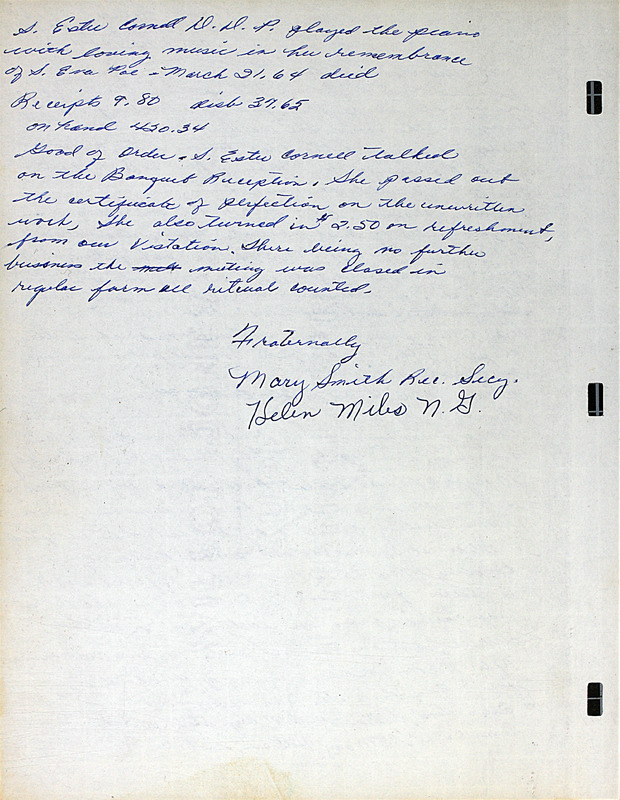 S. Ester Cornell D. D. P. played the piano
with loving music in her remembrance
of S. Eva Poe - March 21, 64 died
Receipts 9.80 Disb 37.65
on hand 420.34
Good of Order. S. Ester Cornell talked
on the Banquet Reception. She passed out
the certificate of perfection on the unwritten
work, She also turned in $ 2.50 on refreshment,
from our Vistation. There being no further
business the meeting was closed in
regular form all ritual counted.
Fraternally
Mary Smith Rec. Secy.
Helen Miles N. G.